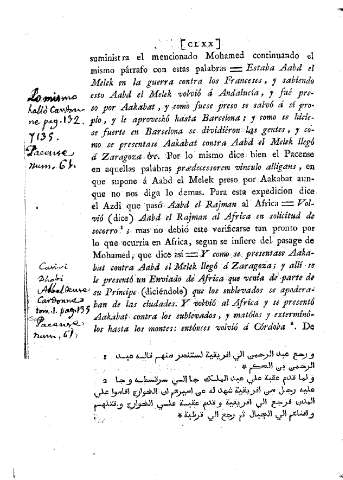 [CLXX]
suministra el mencionado Mohamed continuando el
mismo párrafo con estas palabras = Estaba Aabd el
Melek en la guerra contra los Franceses, y sabiendo
esto Aabd el Melek volvió á Andalucía, y fué pre-
so por Aakabat, y como fuese preso se salvó á si pro-
pio, y le aprovechó hasta Barcelona; y como se hicie-
se fuerte en Barcelona se dividiéron las gentes, y co-
mo se presentase Aakabat contra Aabd el Melek llegó
á Zaragoza &c. Por lo mismo dice bien el Pacense
en aquellas palabras prædecessorem vinculo alligans, en
que supone á Aabd el Melek preso por Aakabat aun-
que no nos diga lo demas. Para esta expedicion dice
el Azdi que pasó Aabd el Rajman al Africa = Vol-
vió (dice) Aabd el Rajman al Africa en solicitud de
socorro 1; mas no debió este verificarse tan pronto por
lo que ocurria en Africa, segun se infiere del pasage de
Mohamed, que dice asi = Y como se presentase Aaka-
bat contra Aabd el Melek llegó á Zaragoza; y allí se
le presentó un Enviado de Africa que venía de parte de
su Príncipe (diciéndole) que los sublevados se apodera-
ban de las ciudades. Y volvió al Africa y se presentó
Aakabat contra los sublevados, y matólos y exterminó-
los hasta los montes: entónces volvió á Córdoba 2. De
Lo mismo
halló Cardon-
ne pag. 132.
y 135.
Pacense
num. 61.
Casiri
Cardonne
tom. 1. pag. 135
Pacense
num. 61.
1 ورجع عبد الرحمن الي افريقية
2 ولما قدم عقبة علي عبد الملك جا الي سرقسطة
المدن فرجع الي افريقية وقدم عقبة علي الخوارج وقتلهم
الي الجبال ثم رجع الي قرطبة